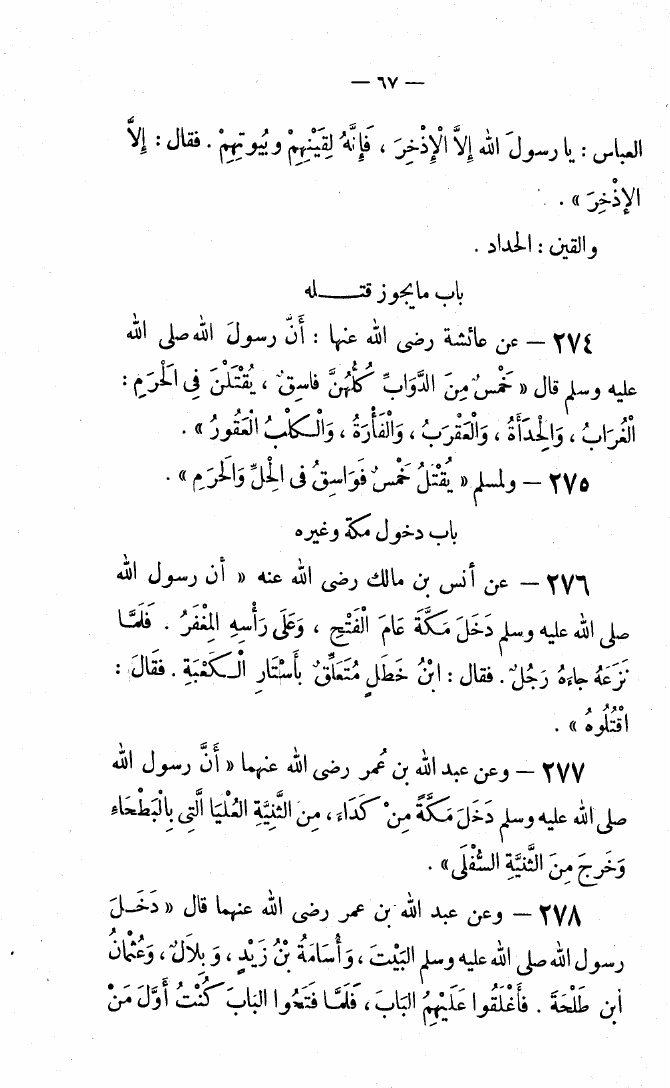 — ٦٧ —
العباس : يا رسولَ الله إِلاَّ الْإِذْخِرَ ، فَإِنَّهُ لِقَيْنِهِمْ وبُيوتِهِمْ . فقال : إِلاَّ
الإذْخِرَ » .
والقين : الحداد .
باب مايجوز قتــله
٢٧٤ — عن عائشة رضى الله عنها : أَنَّ رسولَ الله صلى الله
عليه وسلم قال « خَمْسٌ مِنَ الدَّوَابِّ كُلُّهُنَّ فاسِقٌ ، يُقْتَلْنَ فِى الْحَرَمِ :
الْغُرَابُ ، وَالْحِدَأَةُ ، وَالْعَقْرَبُ ، وَالْفَأْرَةُ ، وَالْكَلْبُ الْعَقُورُ » .
٢٧٥ — ولمسلم « يُقْتَلُ خَمْسٌ فَوَاسِقُ فى الْحِلِّ وَالْحَرَمِ » .
باب دخول مكة وغيره
٢٧٦ — عن أنس بن مالك رضى الله عنه « أن رسول الله
صلى الله عليه وسلم دَخَلَ مَكَّةَ عَامَ الْفَتْحِ ، وَعَلَى رَأْسِهِ الِمْغْفَرُ . فَلَمَّا
نَزَعَهُ جاءَهُ رَجُلٌ . فقال : ابْنُ خَطَلٍ مُتَعَلِّقٌ بأَسْتَارِ الْكَعْبَةِ . فَقَالَ :
اقْتُلُوهُ » .
٢٧٧ — وعن عبد الله بن عُمر رضى الله عنهما « أَنَّ رسول الله
صلى الله عليه وسلم دَخَلَ مَكَّةَ مِنْ كَدَاء ، مِنَ الثَّنِيَّةِ الْعُلْيَا الَّتِى بِالْبَطْحَاءِ
وَخَرجَ مِنَ الثَّنِيَّةِ السُّفْلَى » .
٢٧٨ — وعن عبد الله بن عمر رضى الله عنهما قال « دَخَـلَ
رسول الله صلى الله عليه وسلم البَيْتَ ، وَأُسَامَةُ بْنُ زَيْدٍ ، وَبِلاَلٌ ، وَعُثْمَانُ
ابن طَلْحَةَ . فَأَغْلَقُوا عَلَيْهِمُ البَابَ ، فَلَمَّا فتَحُوا البَابَ كُنْتُ أَوَّلَ مَنْ